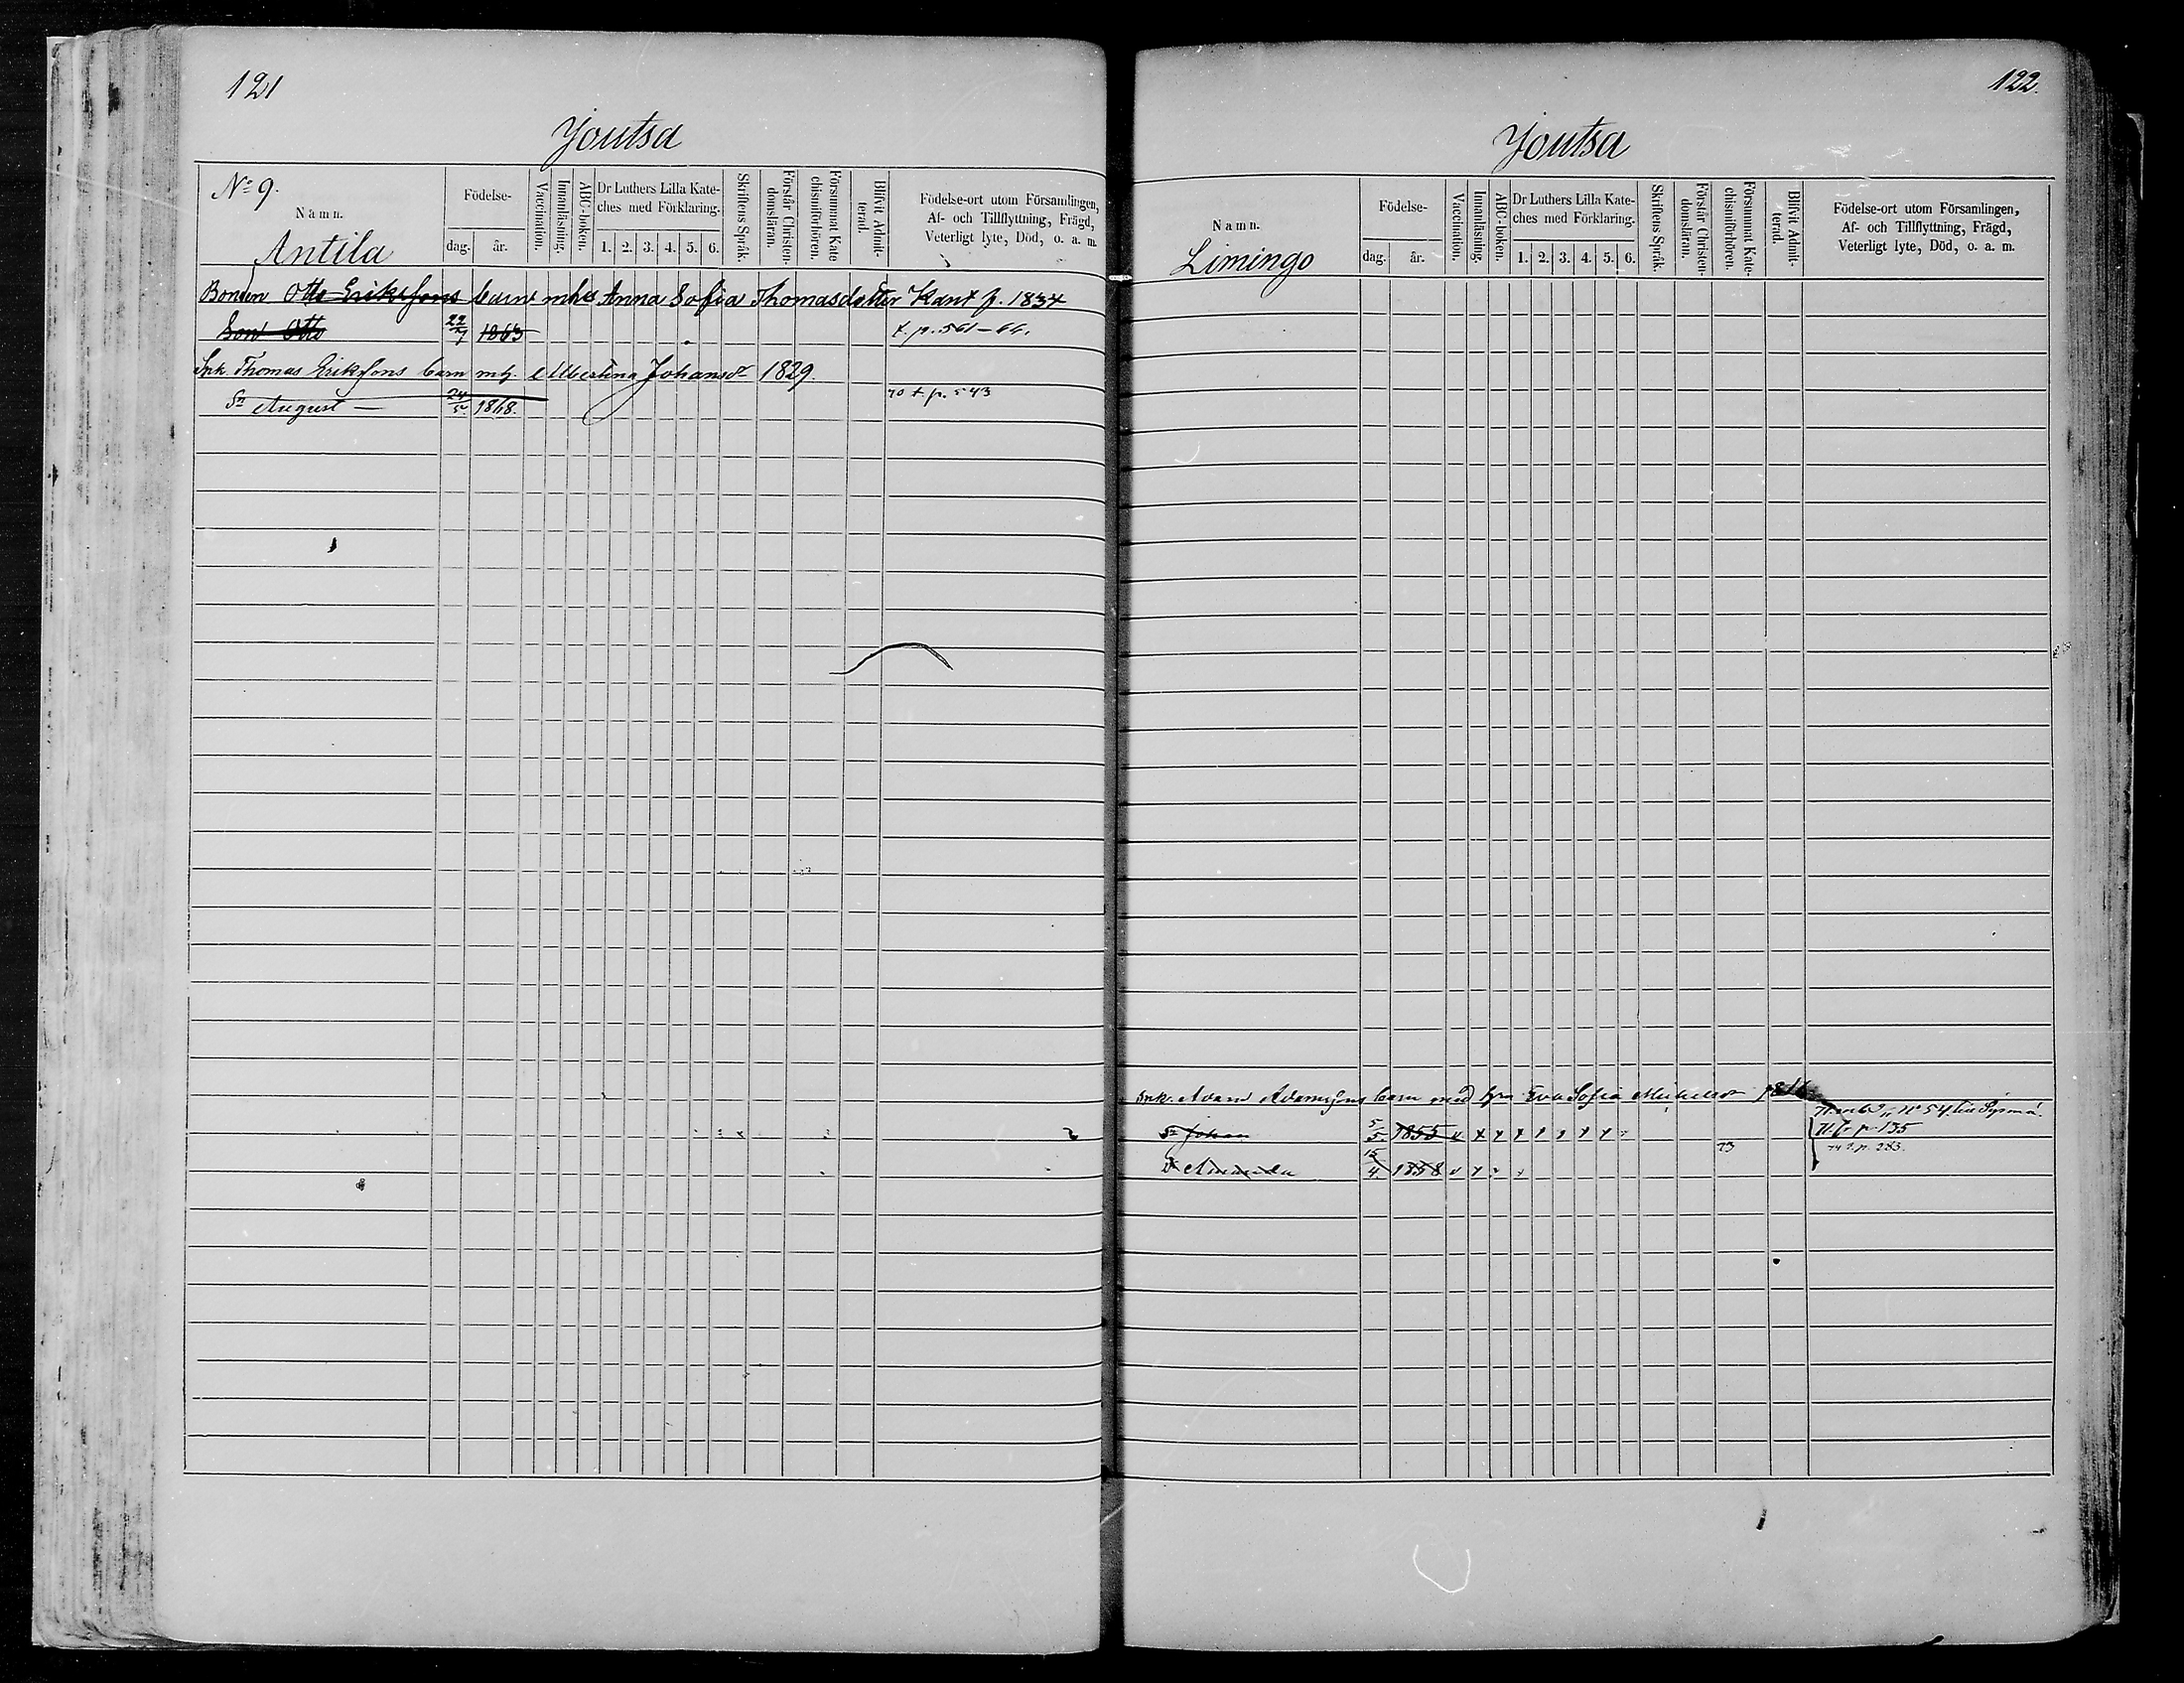 121
Joutsa
No 9.
Namn.
Antila
Födelse-
dag.
år.
Vaccination.
Innanläsning.
ABC-boken.
Dr Luthers Lilla Kate-
ches med Förklaring.
1. 2. 3. 4. 5. 6.
Skriftens Språk.
Förstår Christen-
domsläran.
Försummat Kate
chismiförhören.
Blifvit Admit-
terad.
Födelse-ort utom Församlingen,
Af- och Tillflyttning, Frägd,
Veterligt lyte, Död, o. a. m.
Bonden Otto Eriksons barn mhu Anna Sofia Thomasdotter Kant f. 1834
Son Otto 22/9 1863 t. p. 561-66.
Ink. Thomas Eriksons barn mh. Albertina Johansdr 1829.
Sn August — 24/5. 1868. 70 t. p. 543
122.
Joutsa
Namn.
Limingo
Födelse-
dag.
år.
Vaccination.
Innanläsning.
ABC-boken.
Dr Luthers Lilla Kate-
ches med Förklaring.
1. 2. 3. 4. 5. 6.
Skriftens Språk.
Förstår Christen-
domsläran.
Försummat Kate-
chismiförhören.
Blifvit Admit-
terad.
Födelse-ort utom Församlingen,
Af- och Tillflyttning, Frägd,
Veterligt lyte, Död, o. a. m.
Ink. Adam Adamsons barn med hu Eva Sofia Michelsdr
No 54 till Sysmä.
Sn Johan 5/5. 1855 p 135
73 p. 283.
D Amanda 15/4. 1858